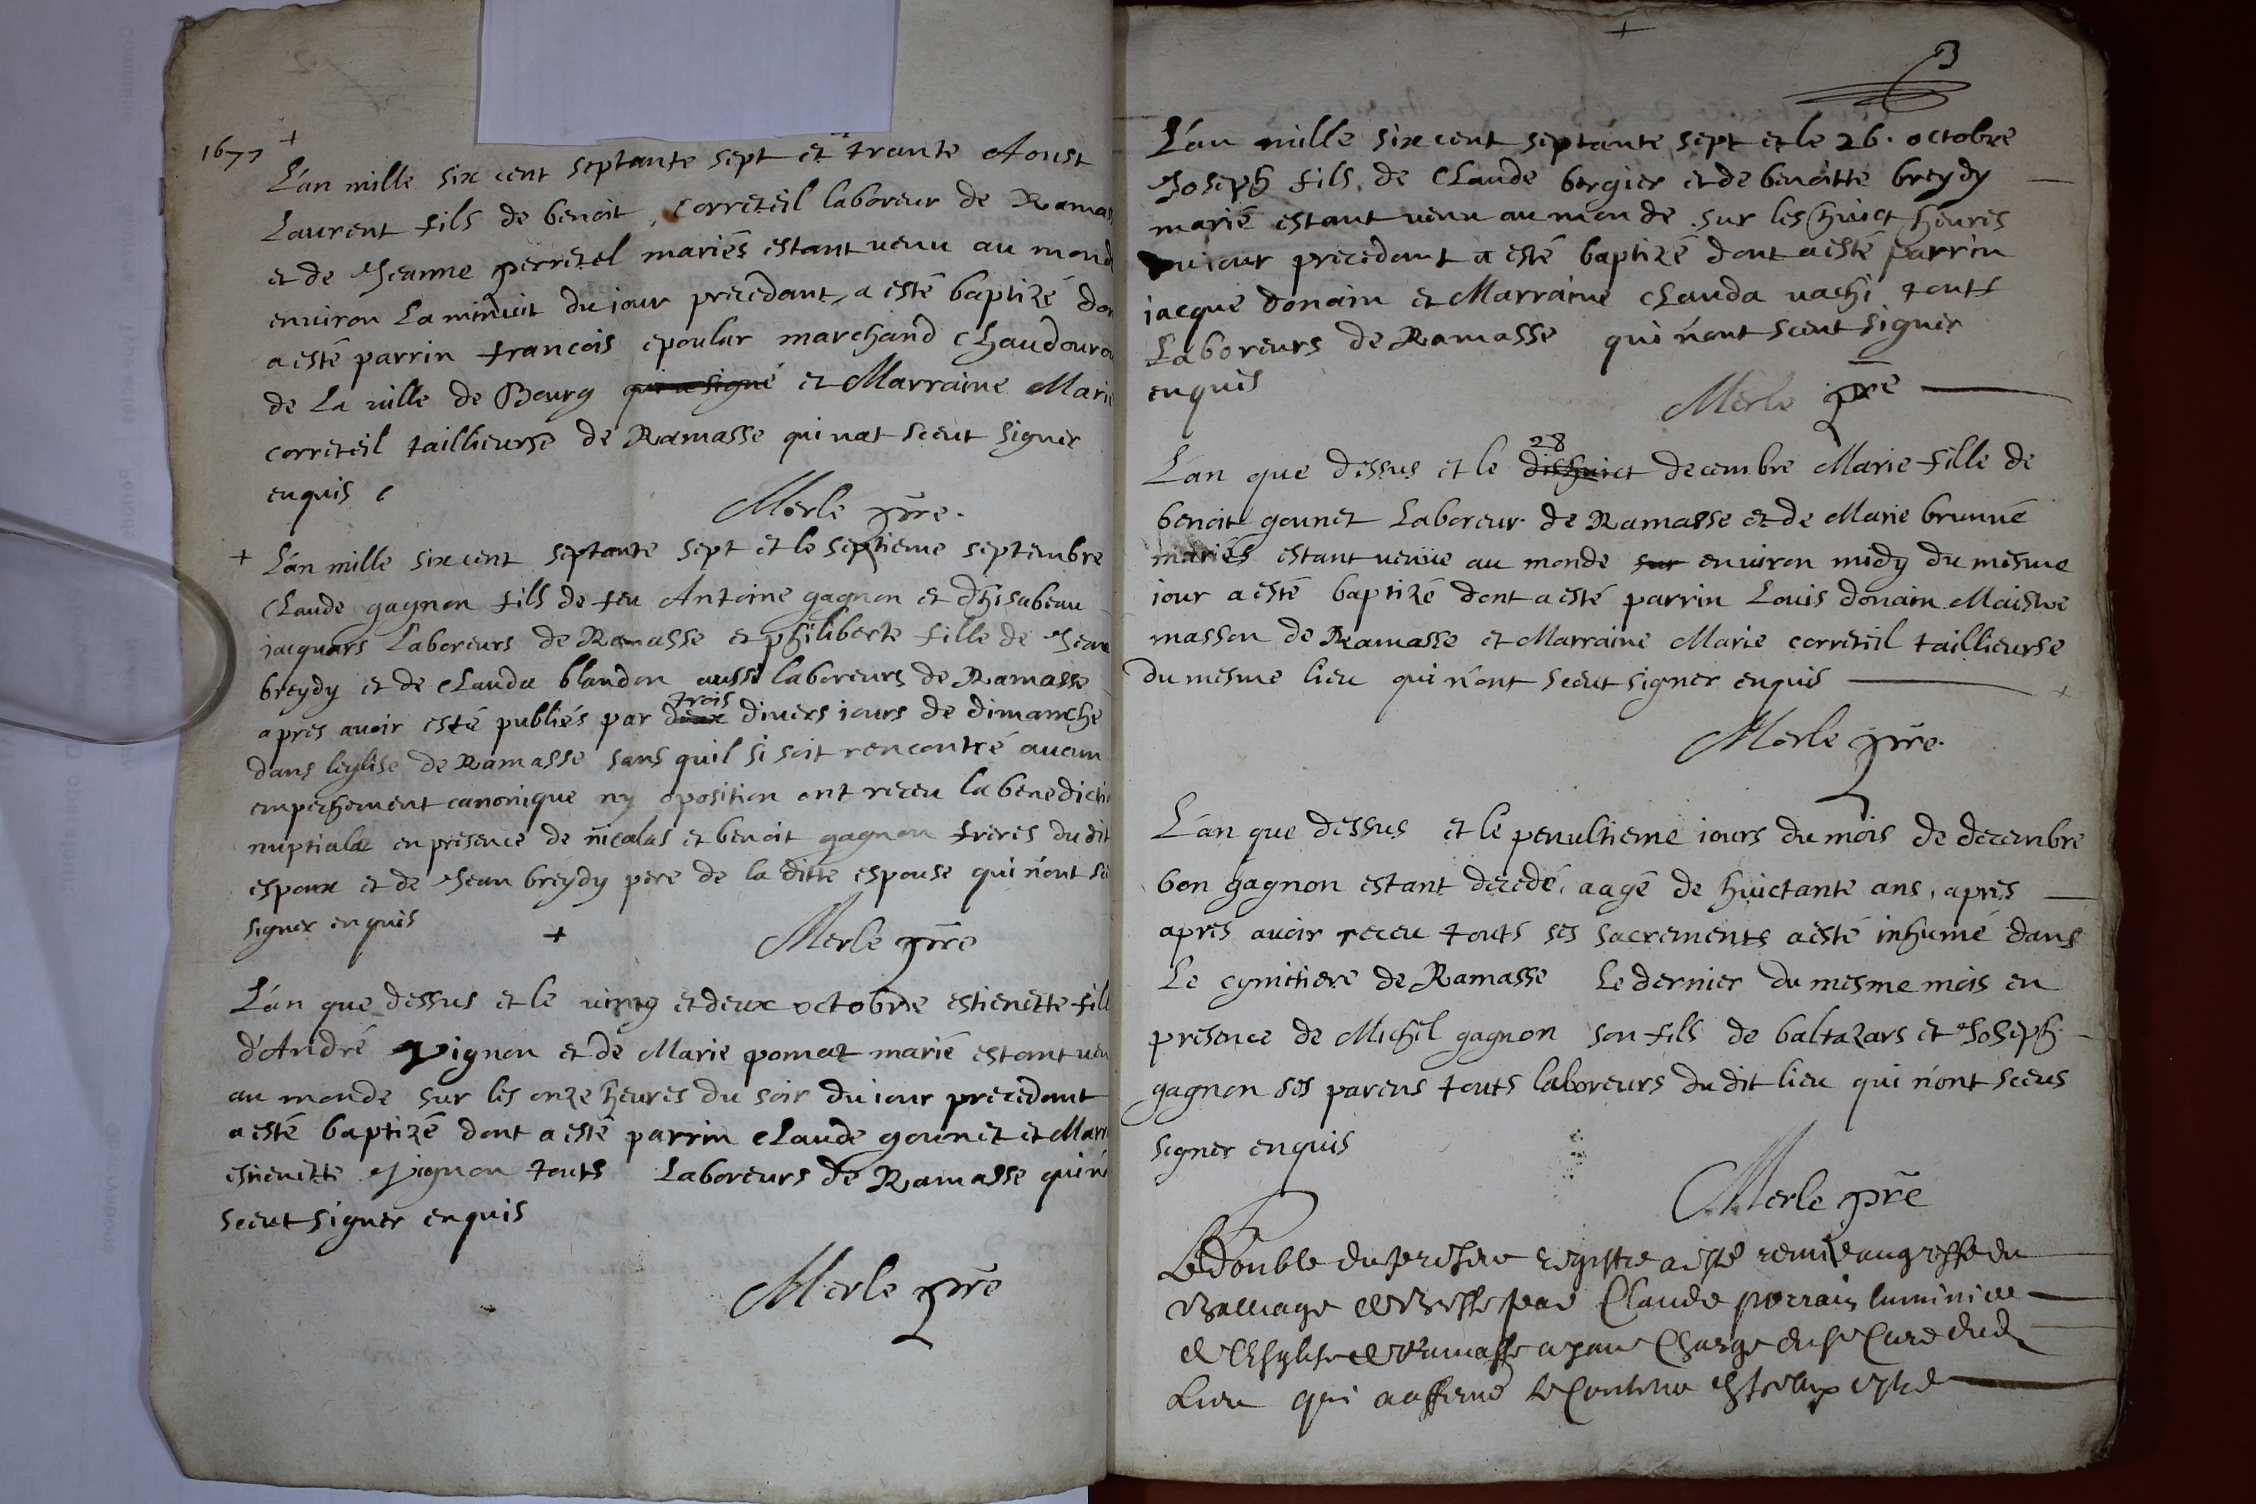 1677
L'an mille six cent septante sept et trante Aoust
Laurent fils de benoit correteil laboreur de Ramas
et de Jeanne perretel mariés estant venu au mond
environ la minuit du jour precedant, a esté baptizé don
a esté parrin francois epoular marchand chaudouro
de la ville de Bourg qui a signé et Marraine Marie
correteil taillieurse de Ramasse qui nat sceut signer
enquis
Merle pre.
L'an mille six cent septante sept et le septieme septembre
Claude gagnon fils de feu Antoine gagnon et d'hisabeau
jacquars Laboreurs de Ramasse et philiberte fille de Jean
breydy et de Clauda blandon aussi laboreurs de Ramasse
apres avoir esté publiés par deux trois divers jours de dimanche
dans leglise de Ramasse sans quil si soit rencontré aucun
empechement canonique ny oposition ont receu la benedictio
nuptiale en presence de nicolas et benoit gagnon freres du dit
espoux et de Jean breydy pere de la ditte espouse qui n'ont sce
signer enquis
Merle pre
L'an que dessus et le vingt et deux octobre estienette fill
d'André pignon et de Marie pomat marié estant ven
au monde sur les onze heures du soir du jour precedant
a esté baptizé dont a esté parrin Claude gounet et Marr
estienette pignon touts Laboreurs de Ramasse qui n'
sceut signer enquis
Merle pre
3
L'an mille six cent septante sept et le 26. octobre
Joseph fils de Claude bergier et de benoitte breydy
marié estant venu au monde sur les huict heures
du jour precedant a esté baptizé dont a esté parrin
jacque donain et Marraine Clauda vachi touts
Laboreurs de Ramasse qui n'ont sceut signer
enquis
Merle pre
L'an que dessus et le dishuict 28 decembre Marie fille de
benoit gounet Laboreur de Ramasse et de Marie brunné
mariés estant venue au monde sur environ midy du mesme
jour a esté baptizé dont a esté parrin Louis donain Maistre
masson de Ramasse et Marraine Marie correteil taillieurse
du mesme lieu qui n'ont sceut signer enquis
Merle pre.
L'an que dessus et le penultieme jours du mois de decembre
bon gagnon estant decedé, aagé de huictante ans, apres
apres avoir receu touts ses sacrements a esté inhumé dans
Le cymitiere de Ramasse Le dernier du mesme mois en
presence de Michel gagnon son fils de baltazars et Joseph
gagnon ses parens touts laboreurs du dit lieu qui n'ont sceus
signer enquis
Merle pre
Le double du presant registre a esté remis au greffe du
Balliage de Bresse par Claude perrain
de l'Esglise de Ramasse ayant Charge du sr Curé dud
Lieu qui a affermé Le Contenu